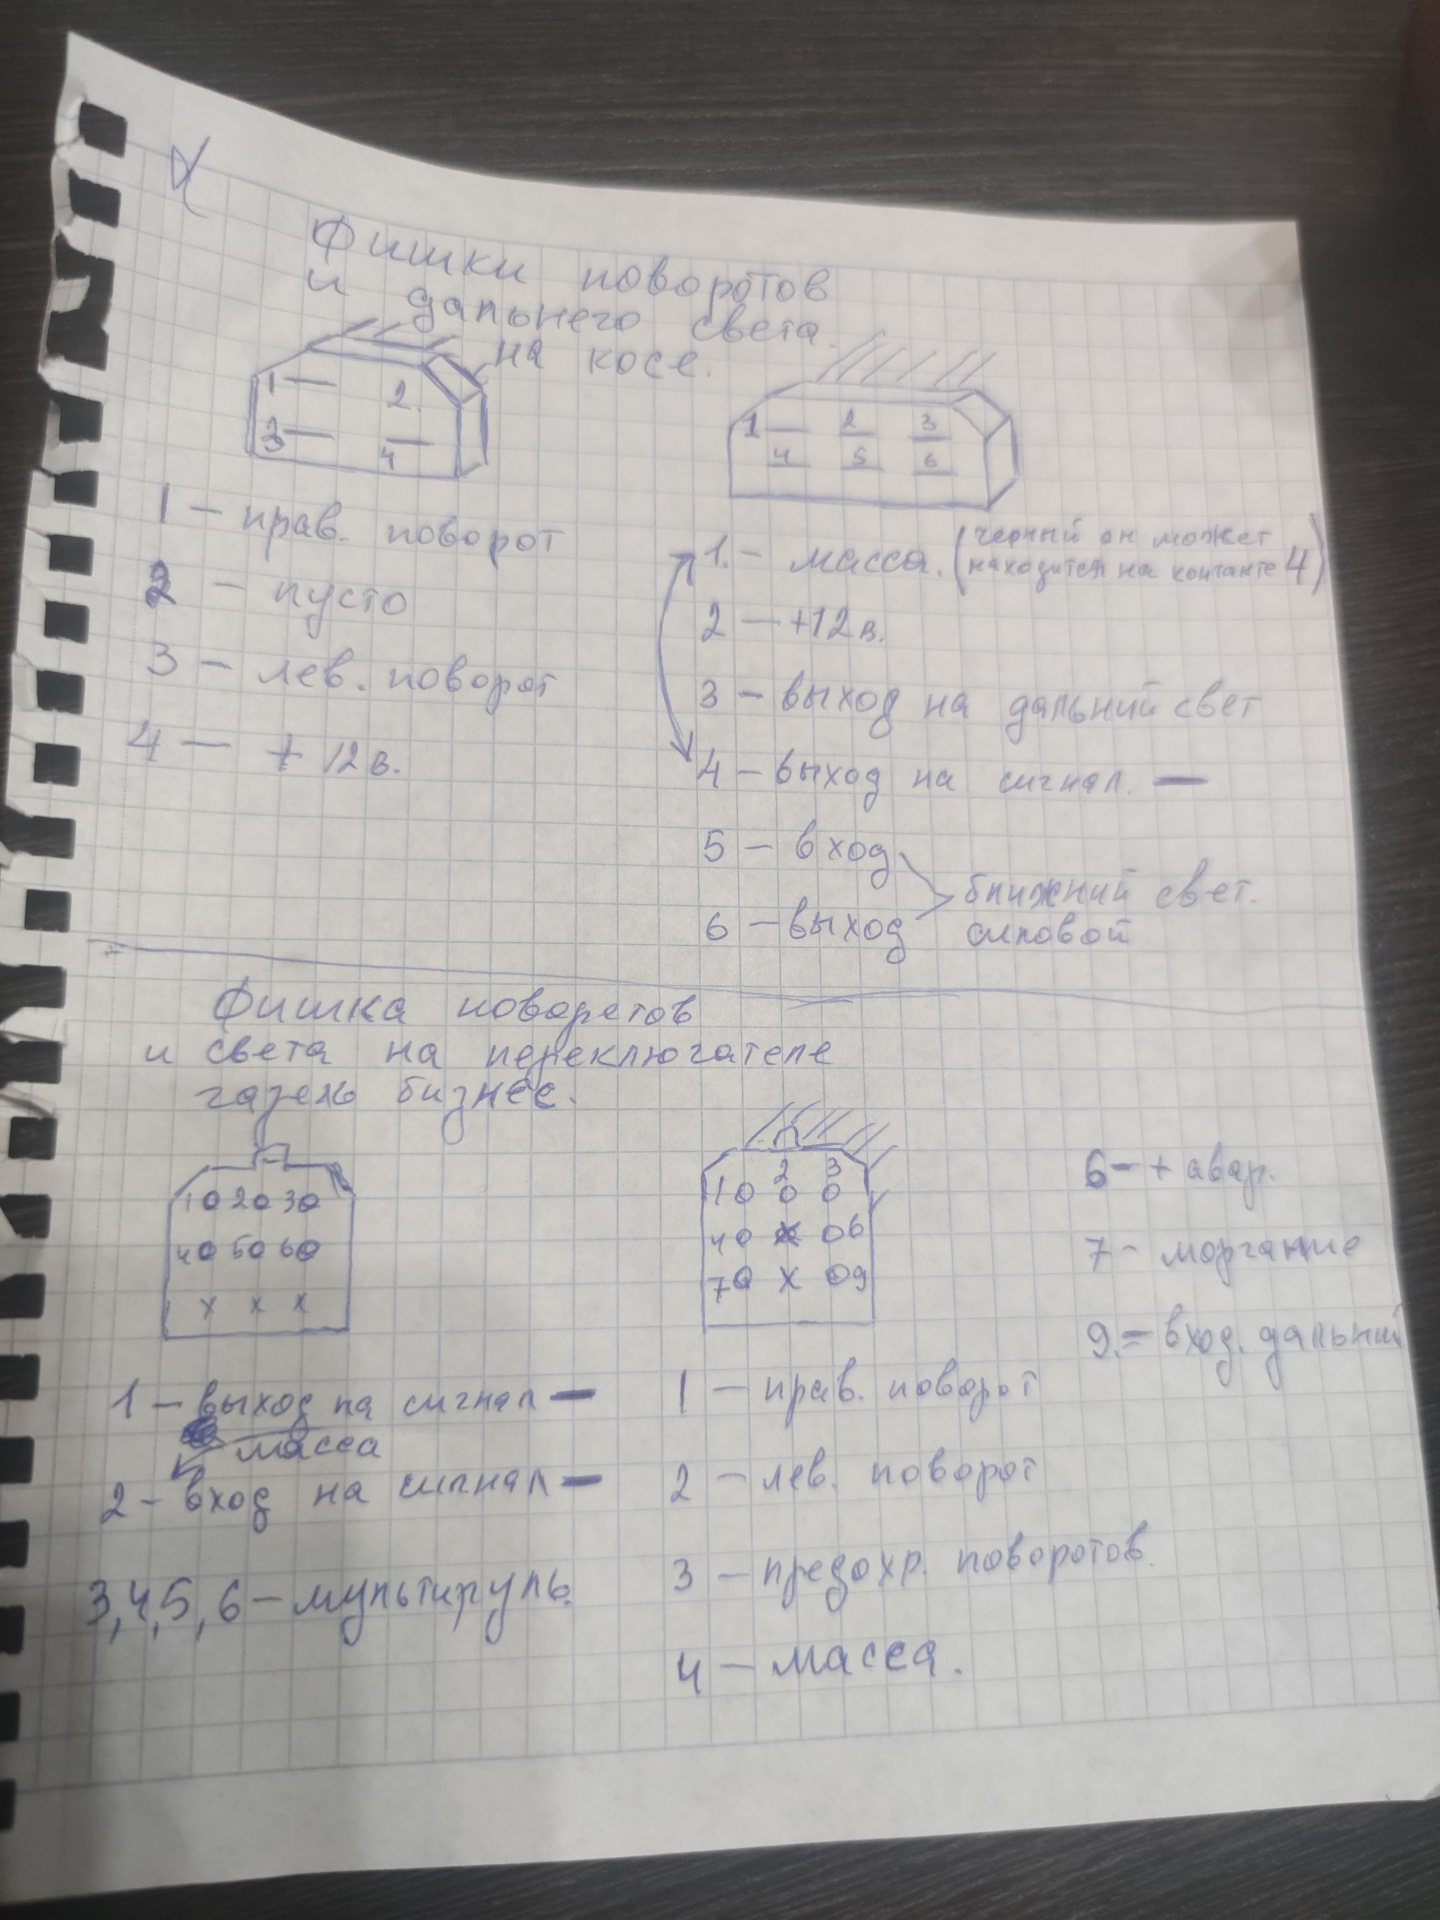 Фишки поворотов
и дальнего света
на косе.
1 2
3 4
1 2 3
4 5 6
1 – прав. поворот
2 – пусто
3 – лев. поворот
4 – + 12 в.
1. – масса. (черный он может
находится на контакте 4)
2 – +12 в.
3 – выход на дальний свет
4 – выход на сигнал. –
5 – вход
6 – выход
ближний свет.
силовой
Фишка поворотов
и света на переключателе
газель бизнес.
1 0 2 0 3 0
4 0 5 0 6 0
x x x
2 3
1 0 0 0
4 0 x 0 6
7 0 x 0 9
1 – выход на сигнал –
масса
2 – вход на сигнал –
3,4,5,6 – мультируль.
1 – прав. поворот
2 – лев. поворот
3 – предохр. поворотов.
4 – масса.
6 – + авар.
7 – моргание
9. = вход. дальний